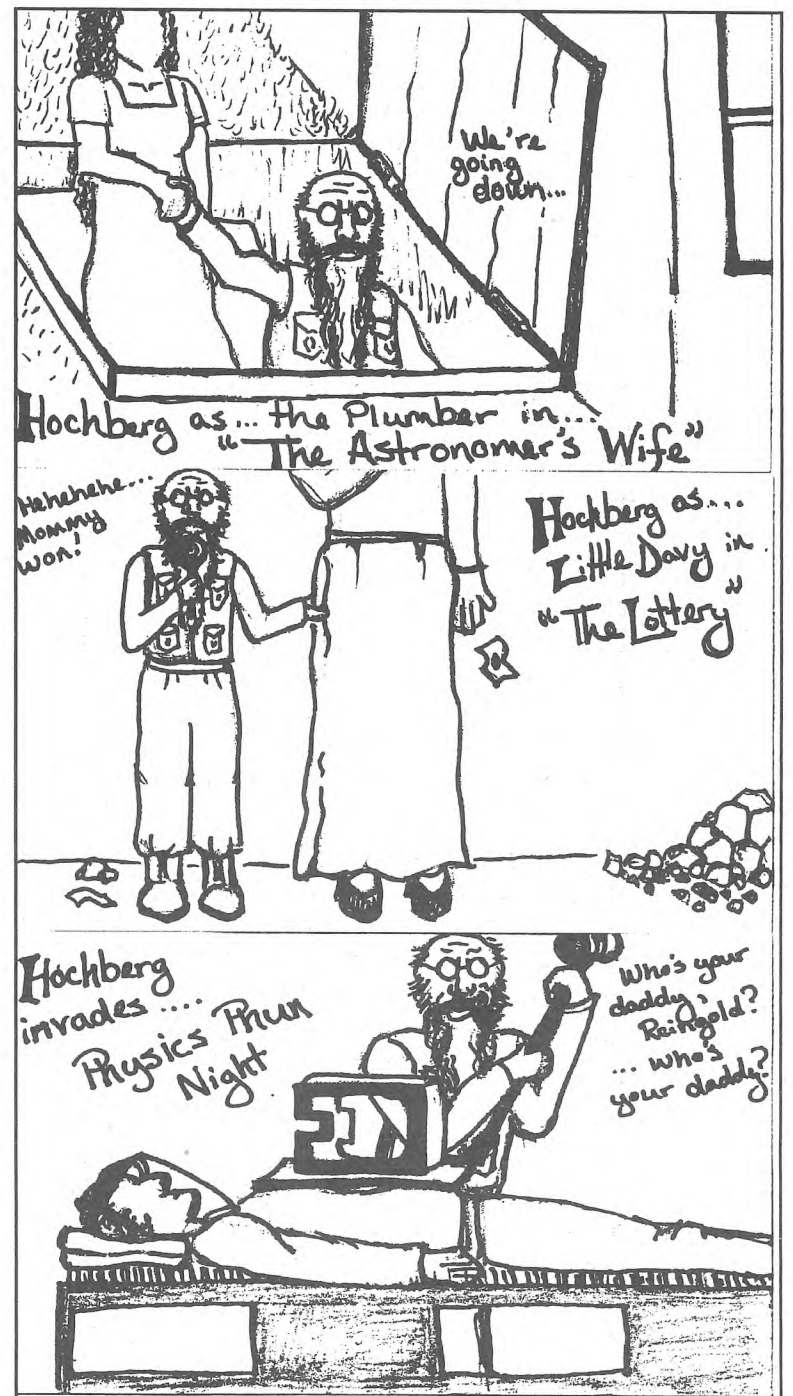 We're
going
down...
Hochberg as... the Plumber in...
"The Astronomer's Wife"
Hehehehe...
Mommy
won!
Hochberg as....
Little Davy in
"The Lottery"
Hochberg
invades ....
Physics Phun
Night
Who's your
daddy,
Reingold?
... who's
your daddy?